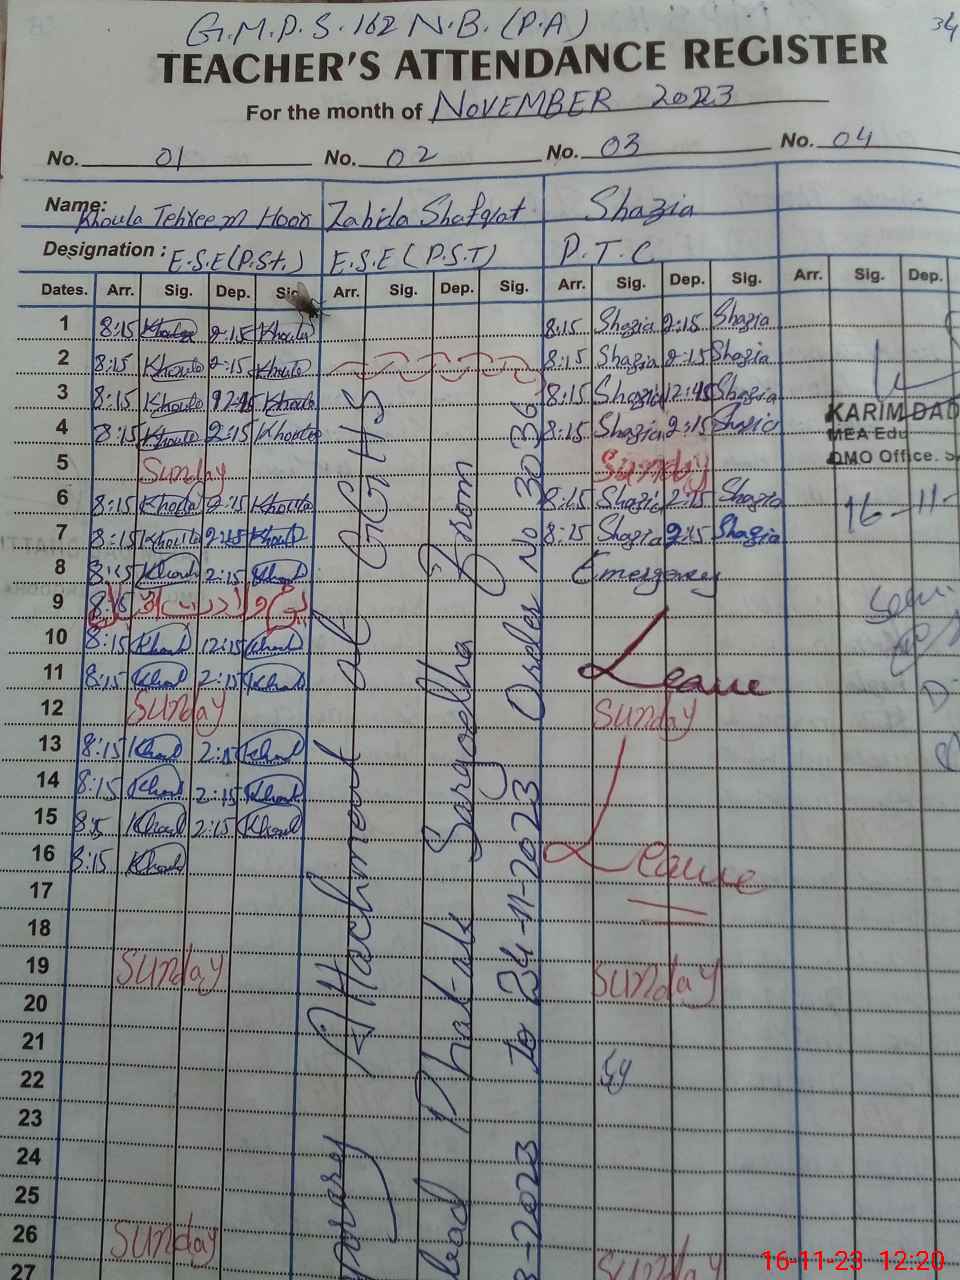 G.M.P.S. 162 N.B. (P.A)
34
TEACHER'S ATTENDANCE REGISTER
For the month of NOVEMBER 2023
No. 01 No. 02 No. 03 No. 04
Name: Khoula Tehreem Hoor Zahida Shafqat Shazia
Designation : E.S.E (P.St.) E.S.E (P.S.T) P.T.C
Dates. Arr. Sig. Dep. Sig. Arr. Sig. Dep. Sig. Arr. Sig. Dep. Sig. Arr. Sig. Dep.
1 8:15 Khoula 2:15 Khoula 8:15 Shazia 2:15 Shazia
2 8:15 Khoula 2:15 Khoula 8:15 Shazia 2:15 Shazia
3 8:15 Khoula 12:45 Khoula 8:15 Shazia 12:45 Shazia
4 8:15 Khoula 2:15 Khoula 8:15 Shazia 2:15 Shazia
KARIM DAD
MEA Edu
DMO Office.
5 Sunday Sunday
6 8:15 Khoula 2:15 Khoula 8:15 Shazia 2:15 Shazia
16-11-
7 8:15 Khoula 2:15 Khoula 8:15 Shazia 2:15 Shazia
8 8:15 Khoul 2:15 Khoul Emergency
9 8:15
10 8:15 Khoul 12:15 Khoul
11 8:15 Khoul 2:15 Khoul Leave
12 Sunday Sunday
13 8:15 Khoul 2:15 Khoul
14 8:15 Khoul 2:15 Khoul
15 8:15 Khoul 2:15 Khoul
16 8:15 Khoul Leave
17
18
19 Sunday Sunday
20
21
22
23
24
25
26 Sunday
27 Sunday
Attachment at GGHS
Phatak Sargodha From
-2023 To 24-11-2023 Order No 3036
16-11-23 12:20